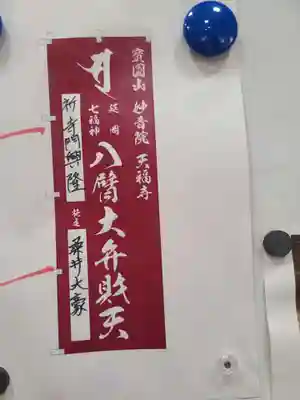 寳圓山 妙音院 天福寺
延岡
七福神
八臂大弁財天
祈 寺門興隆
施主
桑井大豪